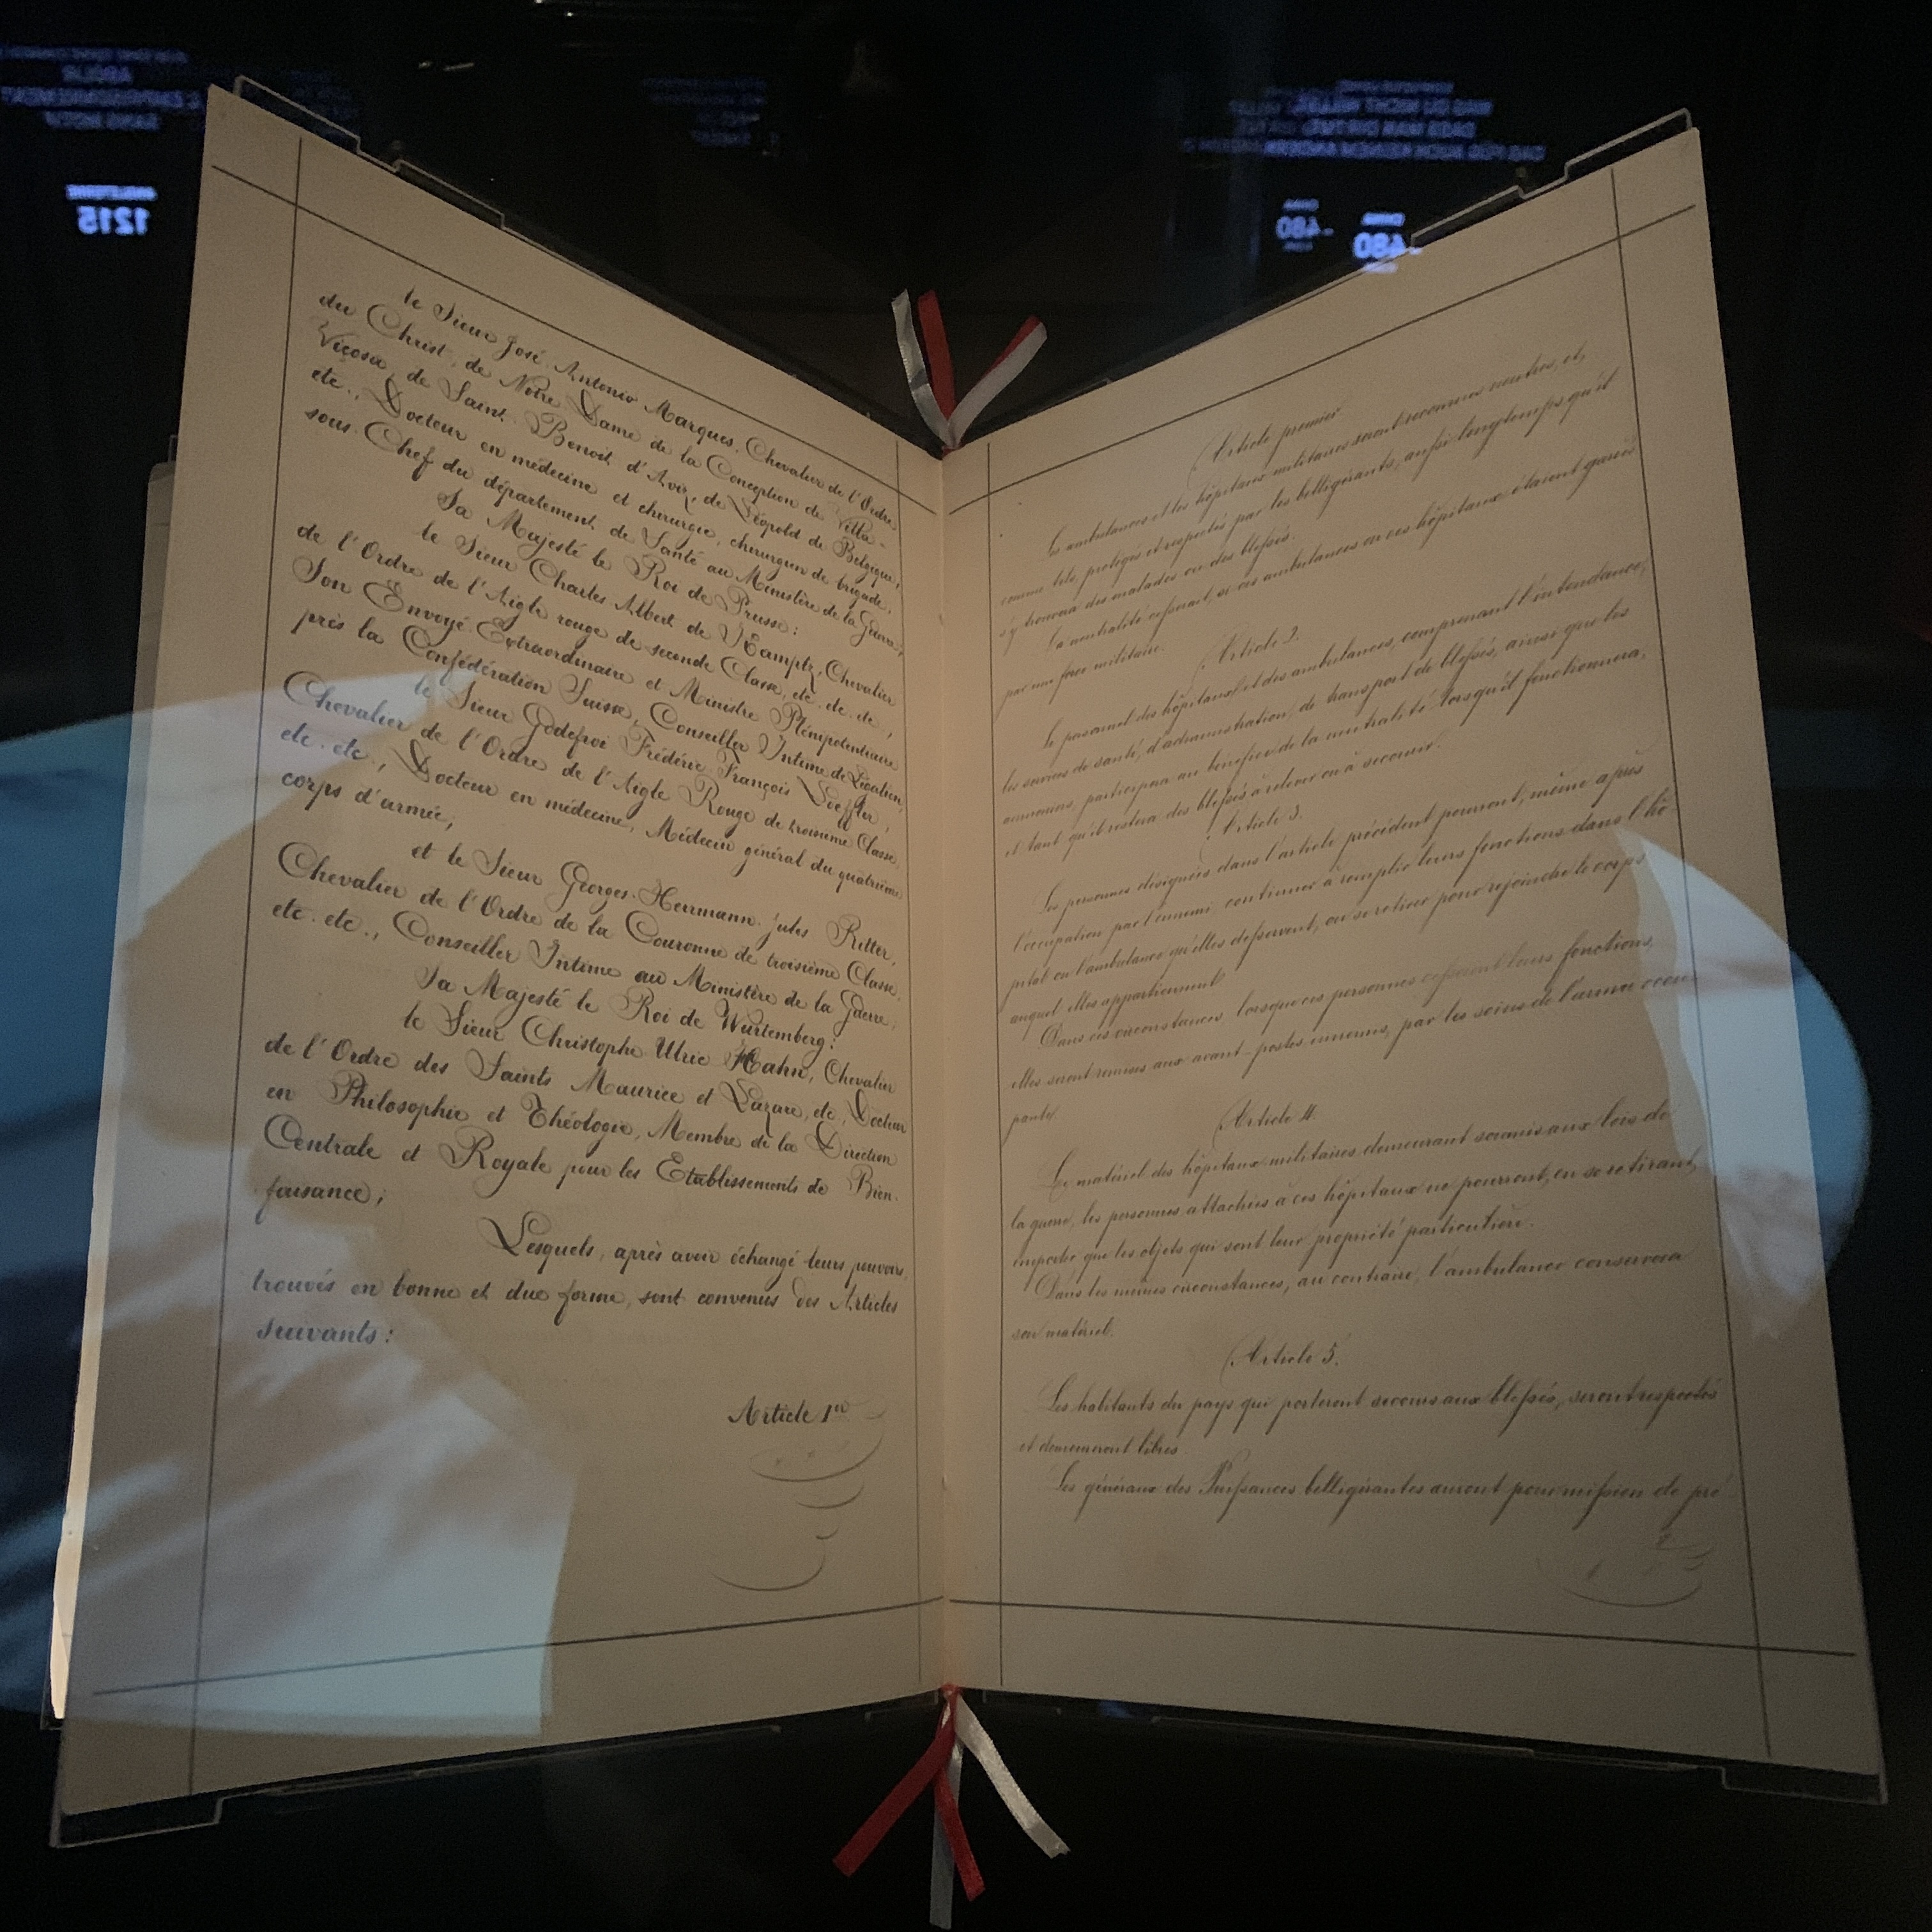 le Sieur José Antonio Marques, Chevalier de l'Ordre
du Christ, de Notre Dame de la Conception de Villa-
Viçosa, de Saint Benoit d'Aviz, de Léopold de Belgique,
etc., Docteur en médecine et chirurgie, chirurgien de brigade,
sous-Chef du département de Santé au Ministère de la Guerre,
Sa Majesté le Roi de Prusse:
le Sieur Charles Albert de Kamptz, Chevalier
de l'Ordre de l'Aigle rouge de seconde Classe, etc. etc. etc.,
Son Envoyé Extraordinaire et Ministre Plénipotentiaire
près la Confédération Suisse, Conseiller Intime de Légation,
le Sieur Godefroi Frédéric François Loeffler,
Chevalier de l'Ordre de l'Aigle Rouge de troisième Classe
etc. etc., Docteur en médecine, Médecin général du quatrième
corps d'armée,
et le Sieur Georges Hermann Jules Ritter,
Chevalier de l'Ordre de la Couronne de troisième Classe,
etc. etc., Conseiller Intime au Ministère de la Guerre,
Sa Majesté le Roi de Wurtemberg:
le Sieur Christophe Ulric Hahn, Chevalier
de l'Ordre des Saints Maurice et Lazare, etc., Docteur
en Philosophie et Théologie, Membre de la Direction
Centrale et Royale pour les Etablissements de Bien-
faisance;
Lesquels, après avoir échangé leurs pouvoirs,
trouvés en bonne et due forme, sont convenus des Articles
suivants:
Article 1er
Article premier
Les ambulances et les hôpitaux militaires seront reconnus neutres, et,
comme tels, protégés et respectés par les belligérants, aussi longtemps qu'il
s'y trouvera des malades ou des blessés.
La neutralité cesserait, si ces ambulances ou ces hôpitaux étaient gardés
par une force militaire.
Article 2.
Le personnel des hôpitaux et des ambulances, comprenant l'intendance,
les services de santé, d'administration, de transport de blessés, ainsi que les
aumôniers, participera au bénéfice de la neutralité lorsqu'il fonctionnera,
et tant qu'il restera des blessés à relever ou à secourir.
Article 3.
Les personnes désignées dans l'article précédent pourront, même après
l'occupation par l'ennemi, continuer à remplir leurs fonctions dans l'hô-
pital ou l'ambulance qu'elles desservent, ou se retirer pour rejoindre le corps
auquel elles appartiennent.
Dans ces circonstances, lorsque ces personnes cesseront leurs fonctions,
elles seront remises aux avant-postes ennemis, par les soins de l'armée occu-
pante.
Article 4
Le matériel des hôpitaux militaires demeurant soumis aux lois de
la guerre, les personnes attachées à ces hôpitaux ne pourront, en se retirant,
emporter que les objets qui sont leur propriété particulière.
Dans les mêmes circonstances, au contraire, l'ambulance conservera
son matériel.
Article 5.
Les habitants du pays qui porteront secours aux blessés, seront respectés
et demeureront libres.
Les généraux des Puissances belligérantes auront pour mission de pré
1215
-480
-480